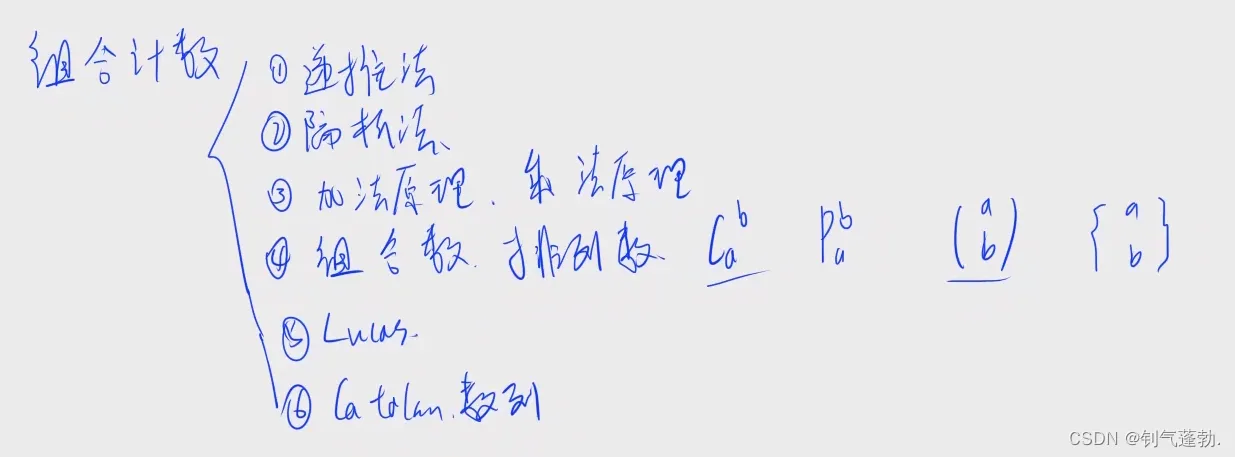 组合计数
① 递推法
② 隔板法
③ 加法原理. 乘法原理
④ 组合数. 排列数 C_a^b P_a^b (a b) {a b}
⑤ Lucas.
⑥ Catalan.数列
CSDN @钊气蓬勃.